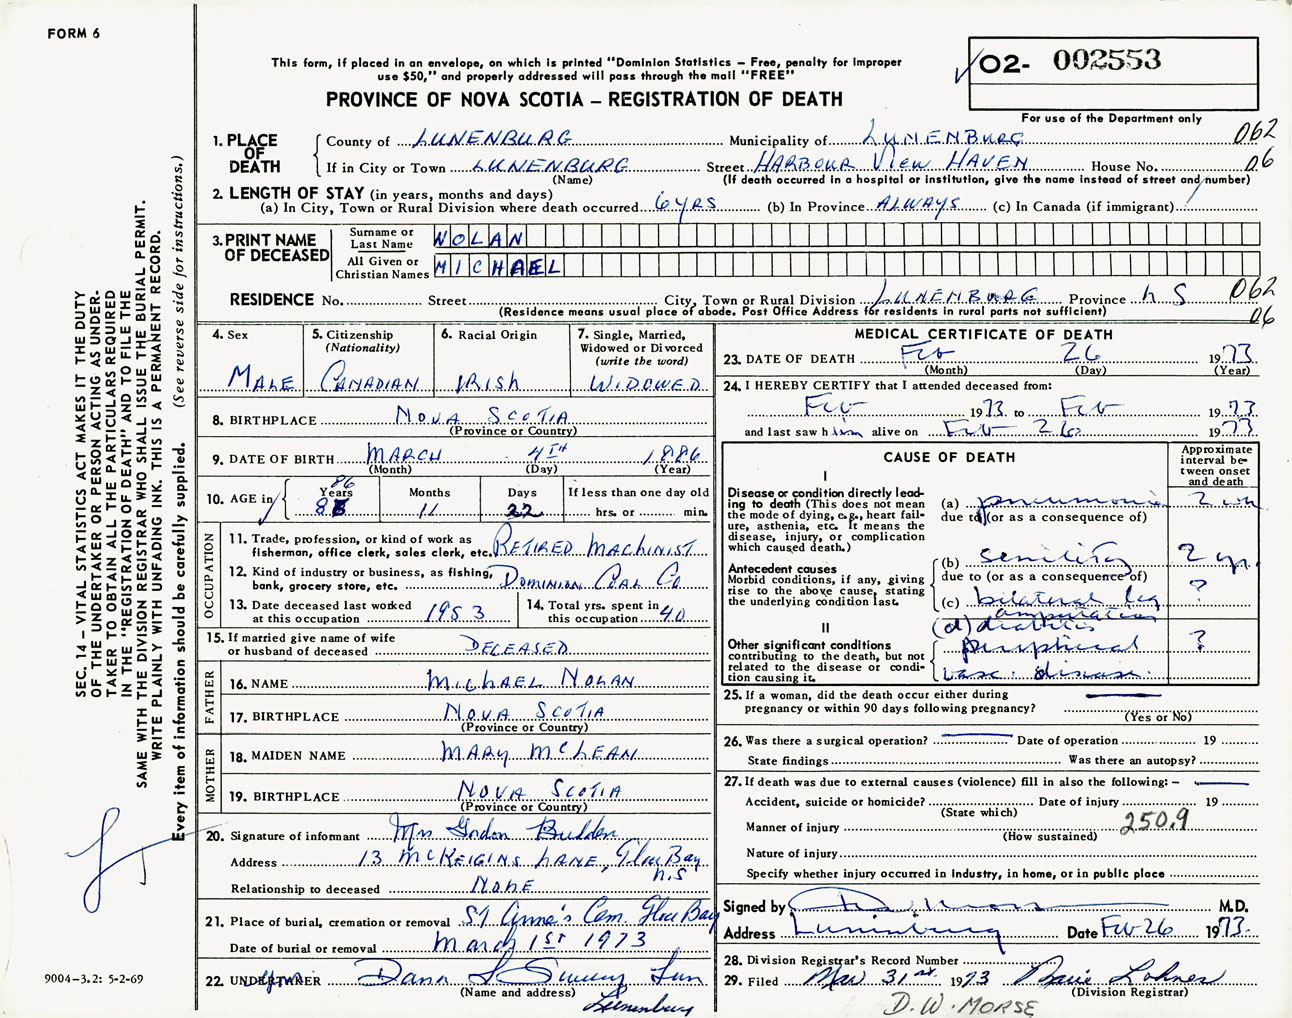 FORM 6
This form, if placed in an envelope, on which is printed "Dominion Statistics – Free, penalty for improper
use $50," and properly addressed will pass through the mail "FREE"
PROVINCE OF NOVA SCOTIA – REGISTRATION OF DEATH
02- 002553
For use of the Department only
SEC. 14 – VITAL STATISTICS ACT MAKES IT THE DUTY
OF THE UNDERTAKER OR PERSON ACTING AS UNDER-
TAKER TO OBTAIN ALL THE PARTICULARS REQUIRED
IN THE "REGISTRATION OF DEATH" AND TO FILE THE
SAME WITH THE DIVISION REGISTRAR WHO SHALL ISSUE THE BURIAL PERMIT.
WRITE PLAINLY WITH UNFADING INK. THIS IS A PERMANENT RECORD.
Every item of information should be carefully supplied. (See reverse side for instructions.)
1. PLACE OF DEATH
County of LUNENBURG Municipality of LUNENBURG 062
If in City or Town LUNENBURG Street HARBOUR VIEW HAVEN House No. 06
(Name) (If death occurred in a hospital or institution, give the name instead of street and number)
2. LENGTH OF STAY (in years, months and days)
(a) In City, Town or Rural Division where death occurred 6 YRS (b) In Province ALWAYS (c) In Canada (if immigrant)
3. PRINT NAME OF DECEASED
Surname or Last Name NOLAN
All Given or Christian Names MICHAEL
RESIDENCE No. Street City, Town or Rural Division LUNENBURG Province N S 062
(Residence means usual place of abode. Post Office Address for residents in rural parts not sufficient) 06
4. Sex MALE
5. Citizenship (Nationality) CANADIAN
6. Racial Origin IRISH
7. Single, Married, Widowed or Divorced (write the word) WIDOWED
8. BIRTHPLACE NOVA SCOTIA
(Province or Country)
9. DATE OF BIRTH MARCH 4TH 1886
(Month) (Day) (Year)
10. AGE in Years 86 Months 11 Days 22 If less than one day old hrs. or min.
OCCUPATION
11. Trade, profession, or kind of work as fisherman, office clerk, sales clerk, etc. RETIRED MACHINIST
12. Kind of industry or business, as fishing, bank, grocery store, etc. DOMINION COAL CO
13. Date deceased last worked at this occupation 1953
14. Total yrs. spent in this occupation 40
15. If married give name of wife or husband of deceased DECEASED
FATHER
16. NAME MICHAEL NOLAN
17. BIRTHPLACE NOVA SCOTIA
(Province or Country)
MOTHER
18. MAIDEN NAME MARY MCLEAN
19. BIRTHPLACE NOVA SCOTIA
(Province or Country)
20. Signature of informant Mrs Gordon Budden
Address 13 MCKEIGINS LANE, Glace Bay
N.S
Relationship to deceased NONE
21. Place of burial, cremation or removal St Anne's Cem. Glace Bay
Date of burial or removal March 1ST 1973
22. UNDERTAKER Dana L Sweeny Fun
(Name and address)
Lunenburg
9004-3.2: 5-2-69
MEDICAL CERTIFICATE OF DEATH
23. DATE OF DEATH Feb 26 1973
(Month) (Day) (Year)
24. I HEREBY CERTIFY that I attended deceased from:
Feb 1973 to Feb 1973
and last saw him alive on Feb 26 1973
CAUSE OF DEATH
Approximate interval between onset and death
I
Disease or condition directly lead-
ing to death (This does not mean
the mode of dying, e.g., heart fail-
ure, asthenia, etc. It means the
disease, injury, or complication
which caused death.)
(a) pneumonia 2 wk
due to (or as a consequence of)
Antecedent causes
Morbid conditions, if any, giving
rise to the above cause, stating
the underlying condition last.
(b) senility 2 yr.
due to (or as a consequence of)
(c) bilateral leg amputation ?
(d) diabetes
II
Other significant conditions
contributing to the death, but not
related to the disease or condi-
tion causing it.
peripheral ?
vasc. disease.
25. If a woman, did the death occur either during
pregnancy or within 90 days following pregnancy?
(Yes or No)
26. Was there a surgical operation? Date of operation 19
State findings Was there an autopsy?
27. If death was due to external causes (violence) fill in also the following: –
Accident, suicide or homicide? Date of injury 19
(State which)
Manner of injury 250.9
(How sustained)
Nature of injury
Specify whether injury occurred in industry, in home, or in public place
Signed by M.D.
Address Lunenburg Date Feb 26 1973.
28. Division Registrar's Record Number
29. Filed Mar 31st 1973
(Division Registrar)
D. W. MORSE